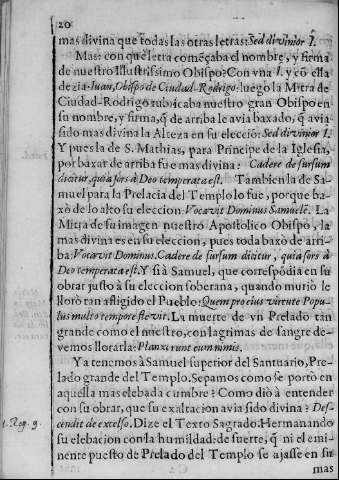 20
mas divina que todas las otras letras: Sed divinior I.
Mas: con que letra comẽçaba el nombre, y firma
de nuestro Illustrissimo Obispo: Con vna I. y cõ ella
dezia Iuan, Obispo de Ciudad-Rodrigo: luego la Mitra de
Ciudad-Rodrigo rubricaba nuestro gran Obispo en
su nombre, y firma, q̃ de arriba le avia baxado, q̃ avia
sido mas divina la Alteza en su elecciõ: Sed divinior I.
Y pues la de S. Mathias, para Principe de la Iglesia,
por baxar de arriba fue mas divina: Cadere de sursum
dicitur, quia sors à Deo temperata est. Tambien la de Sa-
muel para la Prelacia del Templo lo fue, porque ba-
xò de lo alto su eleccion. Vocavit Dominus Samuelẽ. La
Mitra de su imagen nuestro Apostolico Obispo, la
mas divina es en su eleccion, pues toda baxò de arri-
ba. Vocavit Dominus. Cadere de sursum dicitur, quia sors à
Deo temperata est. Y si à Samuel, que correspõdia en su
obrar justo à su eleccion soberana, quando murio le
llorò tan afligido el Pueblo: Quem pro eius virtute Popu-
lus multo tempore flevit. La muerte de vn Prelado tan
grande como el nuestro, con lagrimas de sangre de-
vemos llorarla: Planxerunt eum nimis.
Ya tenemos à Samuel superior del Santuario, Pre-
lado grande del Templo. Sepamos como se portò en
aquella mas elebada cumbre? Como diò à entender
con su obrar, que su exaltacion avia sido divina? Des-
cendit de excelso. Dize el Texto Sagrado. Hermanando
1. Reg. 9.
su elebacion con la humildad: de suerte, q̃ ni el emi-
nente puesto de Prelado del Templo se ajasse en su
mas